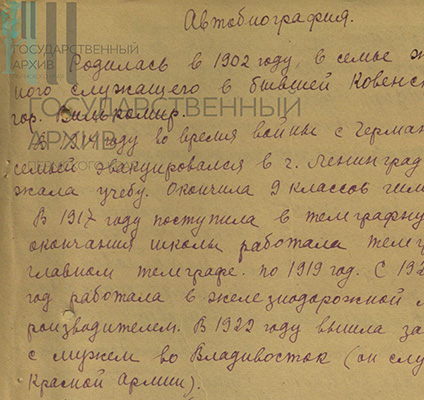 Автобиография.
ГОСУДАРСТВЕННЫЙ
АРХИВ
Родилась в 1902 году, в семье ж
ного служащего в бывшей Ковенс
ГОСУДАРСТВЕННЫЙ
гор. Вилькомир.
АРХИВ
В 1914 году во время войны с Герман
семьей эвакуировался в г. Ленинград
жала учебу. Окончила 9 классов гим
В 1917 году поступила в телеграфну
окончания школы работала телегр
главном телеграфе. по 1919 год. С 192
год работала в железнодорожной
роизводителем. В 1922 году вышла за
с мужем во Владивосток (он слу
Красной Армии).